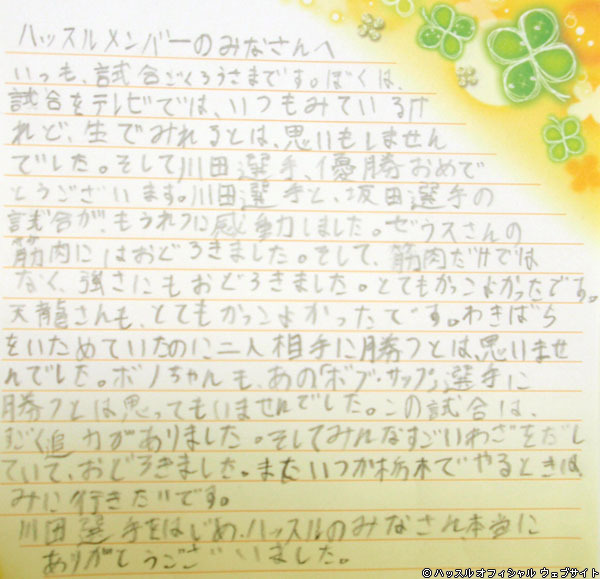 ハッスルメンバーのみなさんへ
いつも、試合ごくろうさまです。ぼくは、
試合をテレビでは、いつもみているけ
れど、生でみれるとは、思いもしません
でした。そして川田選手、優勝おめで
とうございます。川田選手と、坂田選手の
試合が、もうれつに感動しました。ゼウスさんの
筋肉にはおどろきました。そして、筋肉だけでは
なく、強さにもおどろきました。とてもかっこよかったです。
天龍さんも、とてもかっこよかったです。わきばら
をいためていたのに二人相手に勝つとは、思いませ
んでした。ボノちゃんも、あの「ボブ・サップ」選手に
勝つとは思ってもいませんでした。この試合は、
すごく迫力がありました。そしてみんなすごいわざをだし
ていて、おどろきました。またいつか栃木でやるときは、
みに行きたいです。
川田選手をはじめ、ハッスルのみなさん、本当に
ありがとうございました。
© ハッスル オフィシャル ウェブサイト